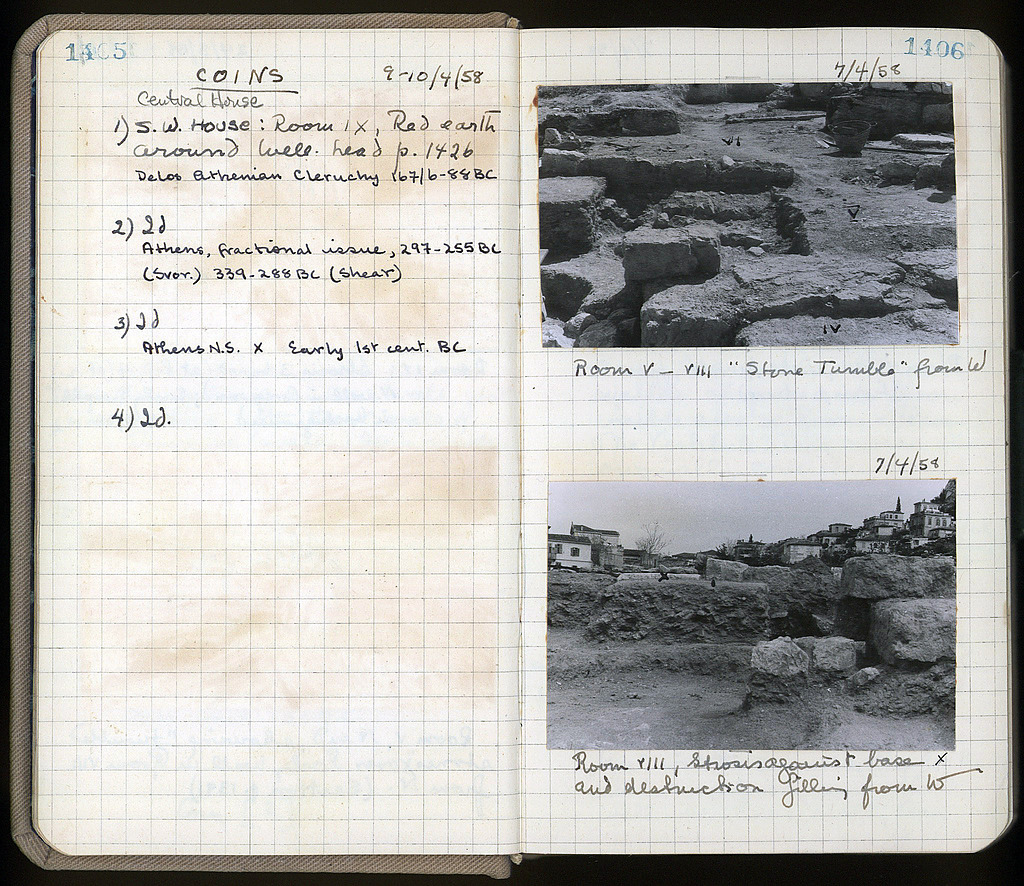 1405
COINS 9-10/4/58
Central House
1) S. W. House: Room IX, Red earth
around well-head p. 1426
Delos Athenian Cleruchy 167/6-88 BC
2) Id
Athens, fractional issue, 297-255 BC
(Svor.) 339-288 BC (Shear)
3) Id
Athens N.S. x Early 1st cent. BC
4) Id.
1406
7/4/58
VI
V
IV
Room V - VIII "Stone Tumble" from W
7/4/58
x
Room VIII, Strosis against base x
and destruction filling from W